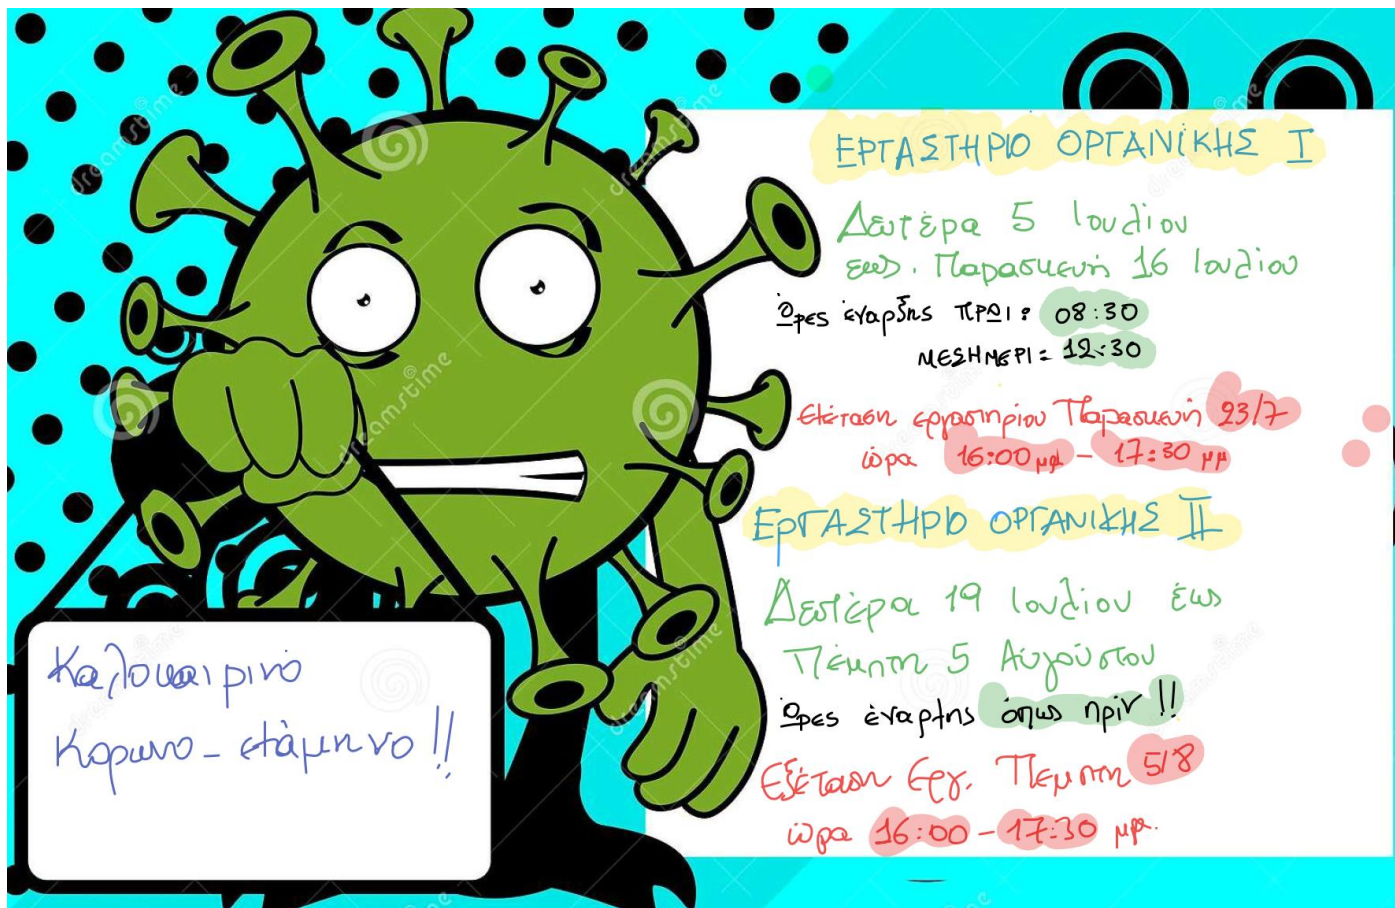 ΕΡΓΑΣΤΗΡΙΟ ΟΡΓΑΝΙΚΗΣ I
Δευτέρα 5 Ιουλίου
εως. Παρασκευή 16 Ιουλίου
Ώρες έναρξης ΠΡΩΙ: 08:30
ΜΕΣΗΜΕΡΙ: 12:30
Εξέταση εργαστηρίου Παρασκευή 23/7
ώρα 16:00 μμ - 17:30 μμ
ΕΡΓΑΣΤΗΡΙΟ ΟΡΓΑΝΙΚΗΣ II
Δευτέρα 19 Ιουλίου έως
Πέμπτη 5 Αυγούστου
Ώρες έναρξης όπως πρίν !!
Εξέταση Εργ. Πεμπτη 5/8
ώρα 16:00 - 17:30 μμ.
Καλοκαιρινό
κορωνο - εξάμηνο !!
dreamstime